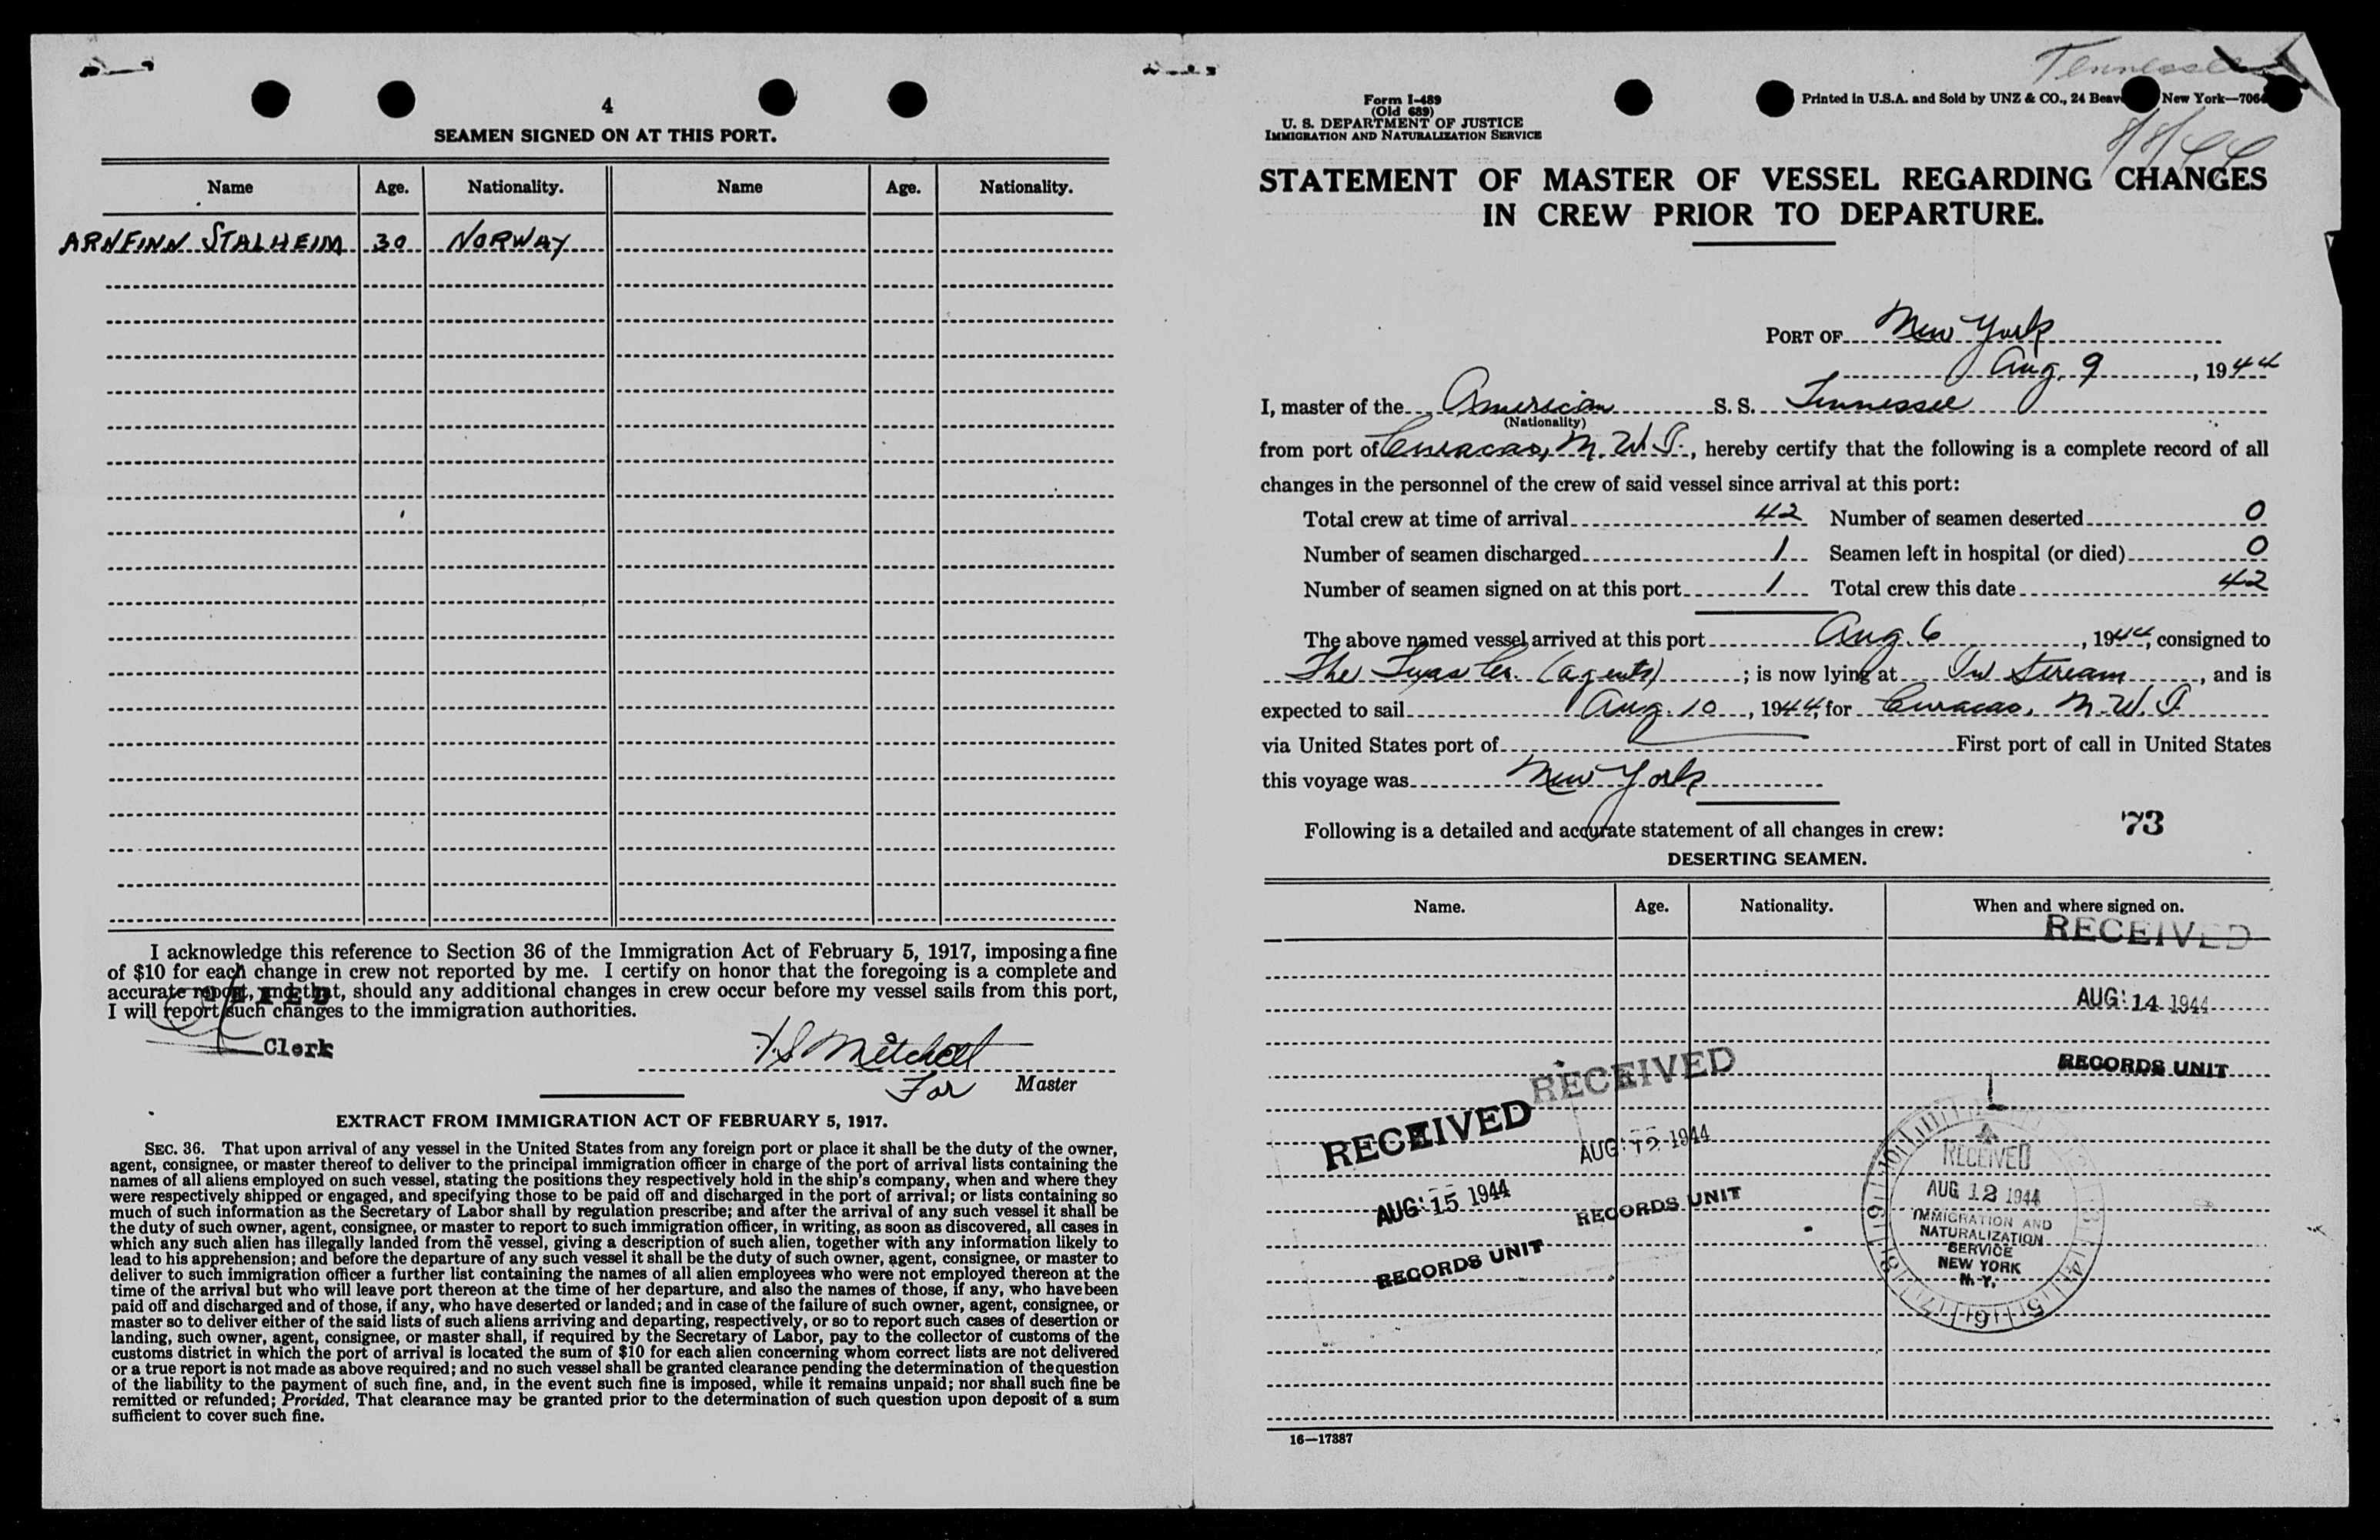 4
SEAMEN SIGNED ON AT THIS PORT.
Name Age. Nationality. Name Age. Nationality.
ARNFINN STALHEIM 30 NORWAY
I acknowledge this reference to Section 36 of the Immigration Act of February 5, 1917, imposing a fine
of $10 for each change in crew not reported by me. I certify on honor that the foregoing is a complete and
accurate report, and that, should any additional changes in crew occur before my vessel sails from this port,
I will report such changes to the immigration authorities.
Clerk
Mitchell
For Master
EXTRACT FROM IMMIGRATION ACT OF FEBRUARY 5, 1917.
SEC. 36. That upon arrival of any vessel in the United States from any foreign port or place it shall be the duty of the owner,
agent, consignee, or master thereof to deliver to the principal immigration officer in charge of the port of arrival lists containing the
names of all aliens employed on such vessel, stating the positions they respectively hold in the ship's company, when and where they
were respectively shipped or engaged, and specifying those to be paid off and discharged in the port of arrival; or lists containing so
much of such information as the Secretary of Labor shall by regulation prescribe; and after the arrival of any such vessel it shall be
the duty of such owner, agent, consignee, or master to report to such immigration officer, in writing, as soon as discovered, all cases in
which any such alien has illegally landed from the vessel, giving a description of such alien, together with any information likely to
lead to his apprehension; and before the departure of any such vessel it shall be the duty of such owner, agent, consignee, or master to
deliver to such immigration officer a further list containing the names of all alien employees who were not employed thereon at the
time of the arrival but who will leave port thereon at the time of her departure, and also the names of those, if any, who have been
paid off and discharged and of those, if any, who have deserted or landed; and in case of the failure of such owner, agent, consignee, or
master so to deliver either of the said lists of such aliens arriving and departing, respectively, or so to report such cases of desertion or
landing, such owner, agent, consignee, or master shall, if required by the Secretary of Labor, pay to the collector of customs of the
customs district in which the port of arrival is located the sum of $10 for each alien concerning whom correct lists are not delivered
or a true report is not made as above required; and no such vessel shall be granted clearance pending the determination of the question
of the liability to the payment of such fine, and, in the event such fine is imposed, while it remains unpaid; nor shall such fine be
remitted or refunded; Provided, That clearance may be granted prior to the determination of such question upon deposit of a sum
sufficient to cover such fine.
Tennessee
Form I-489
(Old 689)
U. S. DEPARTMENT OF JUSTICE
IMMIGRATION AND NATURALIZATION SERVICE
Printed in U.S.A. and Sold by UNZ & CO., 24 Beav New York—706
8/8/44
STATEMENT OF MASTER OF VESSEL REGARDING CHANGES
IN CREW PRIOR TO DEPARTURE.
PORT OF New York
Aug. 9, 1944
I, master of the American S. S. Tennessee
(Nationality)
from port of Curacao, N. W. I., hereby certify that the following is a complete record of all
changes in the personnel of the crew of said vessel since arrival at this port:
Total crew at time of arrival 42 Number of seamen deserted 0
Number of seamen discharged 1 Seamen left in hospital (or died) 0
Number of seamen signed on at this port 1 Total crew this date 42
The above named vessel arrived at this port Aug. 6, 1944, consigned to
The Texas Co. (agents); is now lying at In Stream, and is
expected to sail Aug. 10, 1944, for Curacao, N. W. I.
via United States port of First port of call in United States
this voyage was New York
Following is a detailed and accurate statement of all changes in crew: 73
DESERTING SEAMEN.
Name. Age. Nationality. When and where signed on.
RECEIVED
AUG 14 1944
RECORDS UNIT
RECEIVED
AUG 12 1944
RECORDS UNIT
RECEIVED
AUG 15 1944
RECORDS UNIT
RECEIVED
AUG 12 1944
IMMIGRATION AND
NATURALIZATION
SERVICE
NEW YORK
N. Y.
16—17387